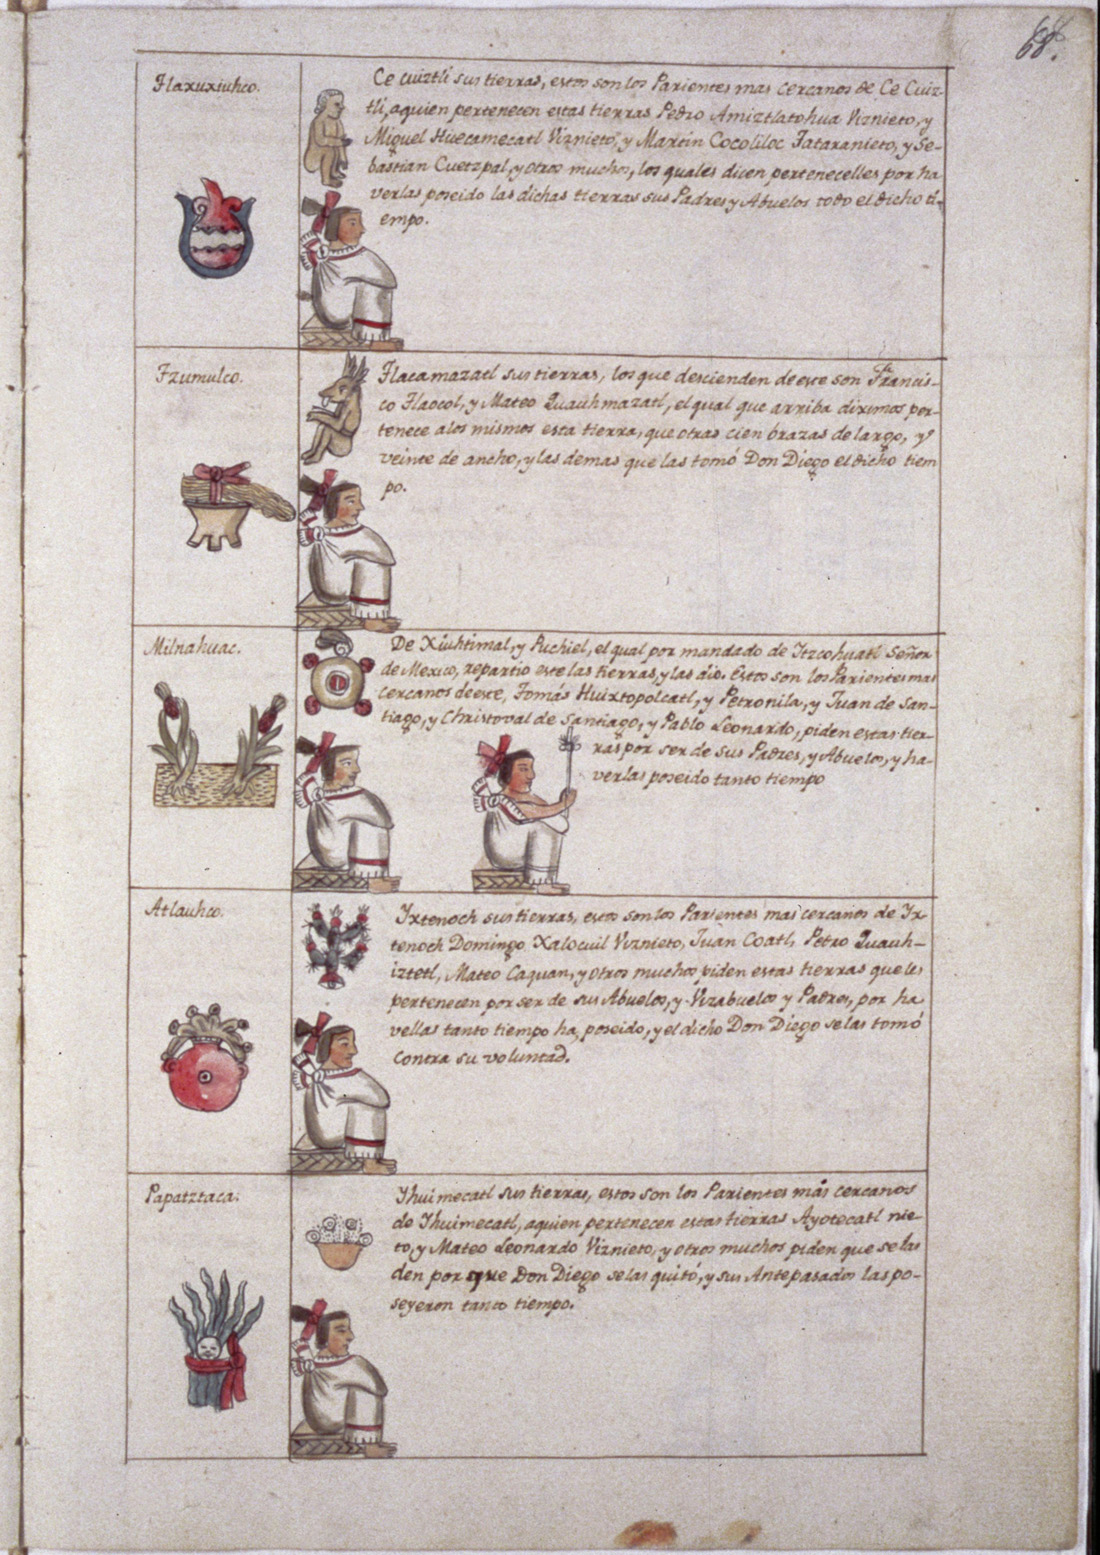 68.
Tlaxuxiuhco.
Ce cuiztli sus tierras, estos son los Parientes mas cercanos de Ce Cuiz-
tli, aquien pertenecen estas tierras Pedro Amiztlatohua Viznieto, y
Miguel Huecamecatl Viznieto, y Martin Cocoliloc Tataranieto, y Se-
bastian Cuetzpal, y otros muchos, los quales dicen pertenecelles por ha
verlas poseido las dichas tierras sus Padres y Abuelos todo el dicho ti-
empo.
Tzumulco.
Tlacamazatl sus tierras, los que descienden de este son Francis-
co Tlaocol, y Mateo Quauhmazatl, el qual que arriba diximos per-
tenece alos mismos esta tierra, que otras cien brazas de largo, y
veinte de ancho, y las demas que las tomó Don Diego el dicho tiem
po.
Milnahuac.
De Xiuhtimal, y Puchiel, el qual por mandado de Itzcohuatl Señor
de Mexico, repartio este las tierras, y las dio. Estos son los Parientes mas
cercanos de este, Tomás Huixtopolcatl, y Petronila, y Juan de San-
tiago, y Christoval de Santiago, y Pablo Leonardo, piden estas tier-
ras por ser de sus Padres, y Abuelos, y ha-
verlas poseido tanto tiempo
Atlauhco.
Yxtenoch sus tierras, estos son los Parientes mas cercanos de Yx-
tenoch Domingo Xalocuil Viznieto, Juan Coatl, Petro Quauh-
iztetl, Mateo Caquan, y otros muchos piden estas tierras que les
pertenecen por ser de sus Abuelos, y Vizabuelos y Padres, por ha
vellas tanto tiempo ha, poseido, y el dicho Don Diego se las tomó
contra su voluntad.
Papatztaca.
Yhuimecatl sus tierras, estos son los Parientes más cercanos
de Yhuimecatl, aquien pertenecen estas tierras Ayotecatl nie-
to, y Mateo Leonardo Viznieto, y otros muchos piden que se las
den por que Don Diego se las quitó, y sus Antepasados las po-
seyeron tanto tiempo.